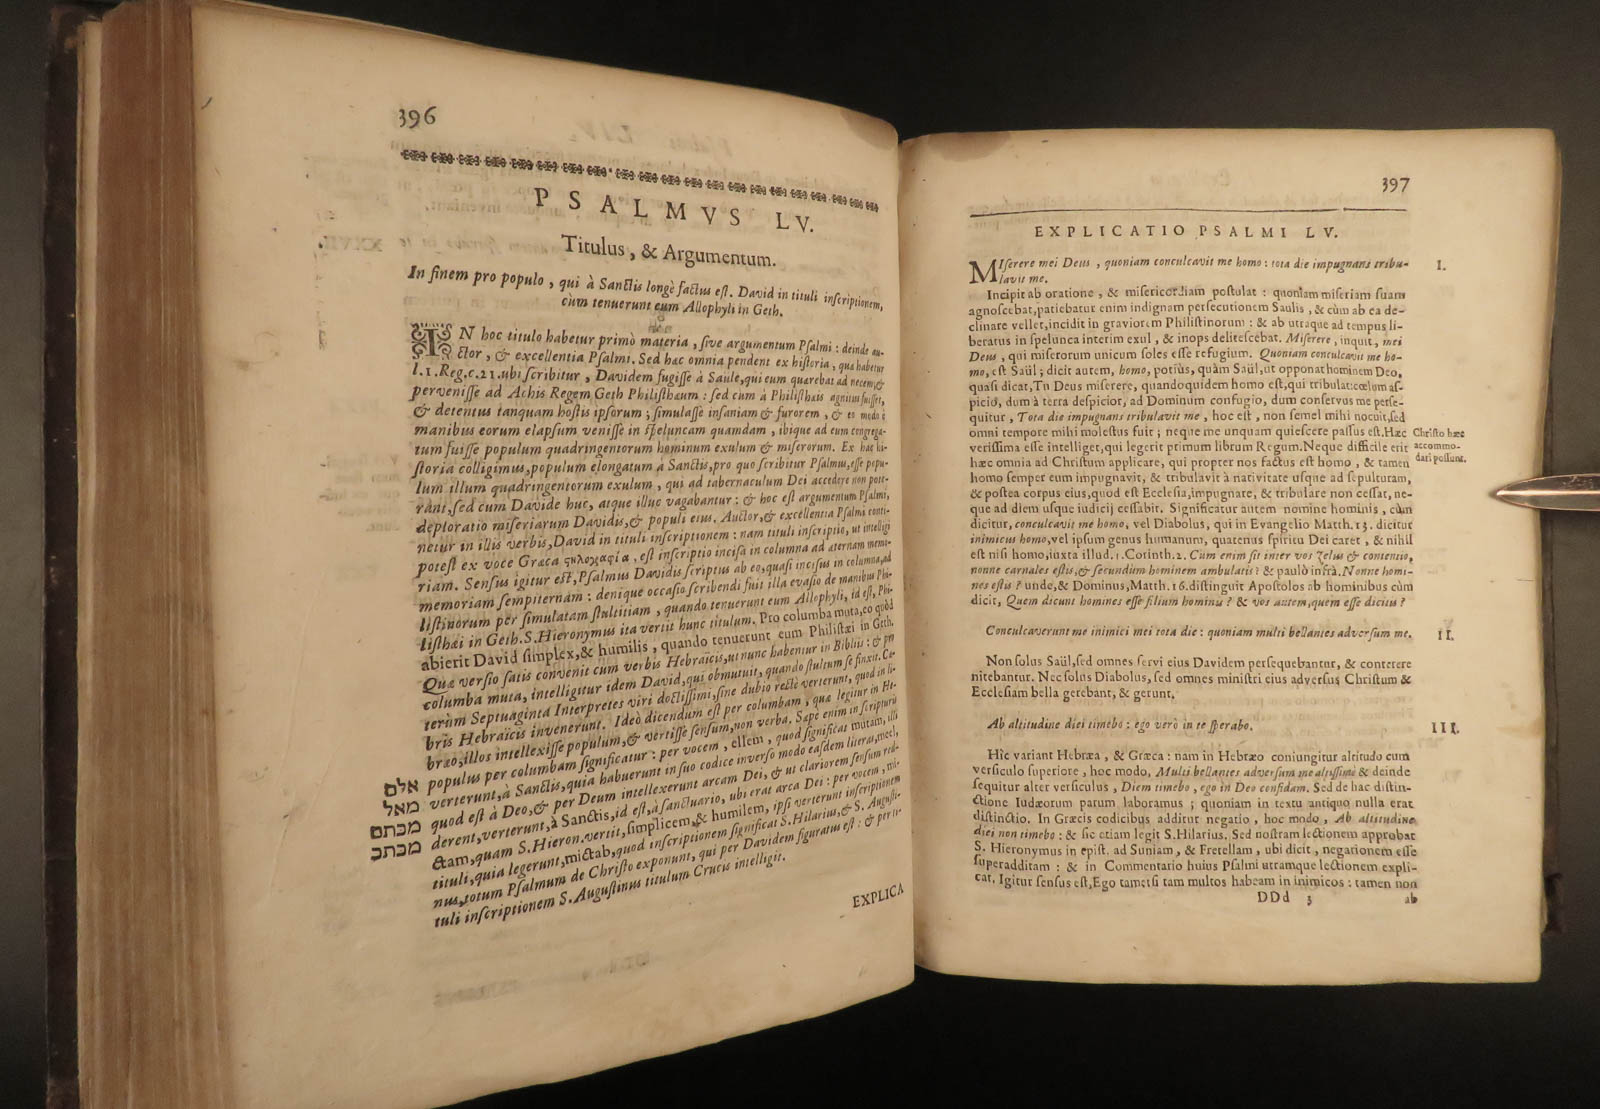 396
PSALMVS LV.
Titulus, & Argumentum.
In finem pro populo, qui à Sanctis longè factus est. David in tituli inscriptionem,
cùm tenuerunt eum Allophyli in Geth.
IN hoc titulo habetur primò materia, sive argumentum Psalmi: deinde au-
ctor, & excellentia Psalmi. Sed hæc omnia pendent ex historia, quæ habetur
l. 1. Reg. c. 21. ubi scribitur, Davidem fugisse à Saule, qui eum quærebat ad necem, &
pervenisse ad Achis Regem Geth Philisthæum: sed cùm à Philisthæis agnitus fuisset,
& detentus tanquam hostis ipsorum; simulasse insaniam & furorem, & eo modo è
manibus eorum elapsum venisse in speluncam quamdam, ibique ad eum congrega-
tum fuisse populum quadringentorum hominum exulum & miserorum. Ex hac hi-
storia colligimus, populum elongatum à Sanctis, pro quo scribitur Psalmus, esse popu-
lum illum quadringentorum exulum, qui ad tabernaculum Dei accedere non pote-
rant, sed cum Davide huc, atque illuc vagabantur: & hoc est argumentum Psalmi,
deploratio miseriarum Davidis, & populi eius. Auctor, & excellentia Psalmi conti-
netur in illis verbis, David in tituli inscriptionem: nam tituli inscriptio, ut intelligi
potest ex voce Græca στηλογραφία, est inscriptio incisa in columna ad æternam memo-
riam. Sensus igitur est, Psalmus Davidis scriptus ab eo, quasi incisus in columna, ad
memoriam sempiternam: denique occasio scribendi fuit illa evasio de manibus Phi-
listinorum per simulatam stultitiam, quando tenuerunt eum Allophyli, id est, Phi-
listhæi in Geth. S. Hieronymus ita vertit hunc titulum. Pro columba muta, eo quòd
abierit David simplex, & humilis, quando tenuerunt eum Philistæi in Geth.
Quæ versio satis convenit cum verbis Hebraicis, ut nunc habentur in Bibliis: & pro
columba muta, intelligitur idem David, qui obmutuit, quando stultum se finxit. Ce-
terùm Septuaginta Interpretes viri doctissimi, sine dubio rectè verterunt, quod in li-
bris Hebraicis invenerunt. Ideò dicendum est per columbam, quæ legitur in He-
bræo, illos intellexisse populum, & vertisse sensum, non verba. Sæpe enim in scripturis
populus per columbam significatur: per vocem, ellem, quod significat mutam, illi
verterunt, à Sanctis, quia habuerunt in suo codice inverso modo easdem literas, meel,
quod est à Deo, & per Deum intellexerunt arcam Dei, & ut clariorem sensum red-
derent, verterunt, à Sanctis, id est, à sanctuario, ubi erat arca Dei: per vocem, mi-
ctam, quam S. Hieron. vertit, simplicem, & humilem, ipsi verterunt inscriptionem
tituli, quia legerunt, mictab, quod inscriptionem significat S. Hilarius, & S. Augusti-
nus, totum Psalmum de Christo exponunt, qui per Davidem figuratus est: & per ti-
tuli inscriptionem S. Augustinus titulum Crucis intelligit.
אלם
מאל
מכתם
מכתב
EXPLICA
397
EXPLICATIO PSALMI LV.
MIserere mei Deus, quoniam conculcavit me homo: tota die impugnans tribu-
lavit me.
I.
Incipit ab oratione, & misericordiam postulat: quoniam miseriam suam
agnoscebat, patiebatur enim indignam persecutionem Saulis, & cùm ab ea de-
clinare vellet, incidit in graviorem Philistinorum: & ab utraque ad tempus li-
beratus in spelunca interim exul, & inops delitescebat. Miserere, inquit, mei
Deus, qui miserorum unicum soles esse refugium. Quoniam conculcavit me ho-
mo, est Saül; dicit autem, homo, potiùs, quàm Saül, ut opponat hominem Deo,
quasi dicat, Tu Deus miserere, quandoquidem homo est, qui tribulat: cœlum as-
picio, dum à terra despicior, ad Dominum confugio, dum conservus me perse-
quitur, Tota die impugnans tribulavit me, hoc est, non semel mihi nocuit, sed
omni tempore mihi molestus fuit; neque me unquam quiescere passus est. Hæc
verissima esse intelliget, qui legerit primum librum Regum. Neque difficile erit
hæc omnia ad Christum applicare, qui propter nos factus est homo, & tamen
homo semper eum impugnavit, & tribulavit à nativitate usque ad sepulturam,
& postea corpus eius, quod est Ecclesia, impugnare, & tribulare non cessat, ne-
que ad diem usque iudicij cessabit. Significatur autem nomine hominis, cùm
dicitur, conculcavit me homo, vel Diabolus, qui in Evangelio Matth. 13. dicitur
inimicus homo, vel ipsum genus humanum, quatenus spiritu Dei caret, & nihil
est nisi homo, iuxta illud. 1. Corinth. 2. Cum enim sit inter vos zelus & contentio,
nonne carnales estis, & secundum hominem ambulatis? & paulò infrà. Nonne homi-
nes estis? unde, & Dominus, Matth. 16. distinguit Apostolos ab hominibus cùm
dicit, Quem dicunt homines esse filium hominis? & vos autem, quem esse dicitis?
Christo hæc
accommo-
dari possunt.
Conculcaverunt me inimici mei tota die: quoniam multi bellantes adversum me.
II.
Non solus Saül, sed omnes servi eius Davidem persequebantur, & conterere
nitebantur. Nec solus Diabolus, sed omnes ministri eius adversus Christum &
Ecclesiam bella gerebant, & gerunt.
Ab altitudine diei timebo: ego verò in te sperabo.
III.
Hîc variant Hebræa, & Græca: nam in Hebræo coniungitur altitudo cum
versiculo superiore, hoc modo, Multi bellantes adversum me altissimè & deinde
sequitur alter versiculus, Diem timebo, ego in Deo confidam. Sed de hac distin-
ctione Iudæorum parum laboramus; quoniam in textu antiquo nulla erat
distinctio. In Græcis codicibus additur negatio, hoc modo, Ab altitudine
diei non timebo: & sic etiam legit S. Hilarius. Sed nostram lectionem approbat
S. Hieronymus in epist. ad Suniam, & Fretellam, ubi dicit, negationem esse
superadditam: & in Commentario huius Psalmi utramque lectionem expli-
cat. Igitur sensus est, Ego tametsi tam multos habeam inimicos: tamen non
DDd 3
ab